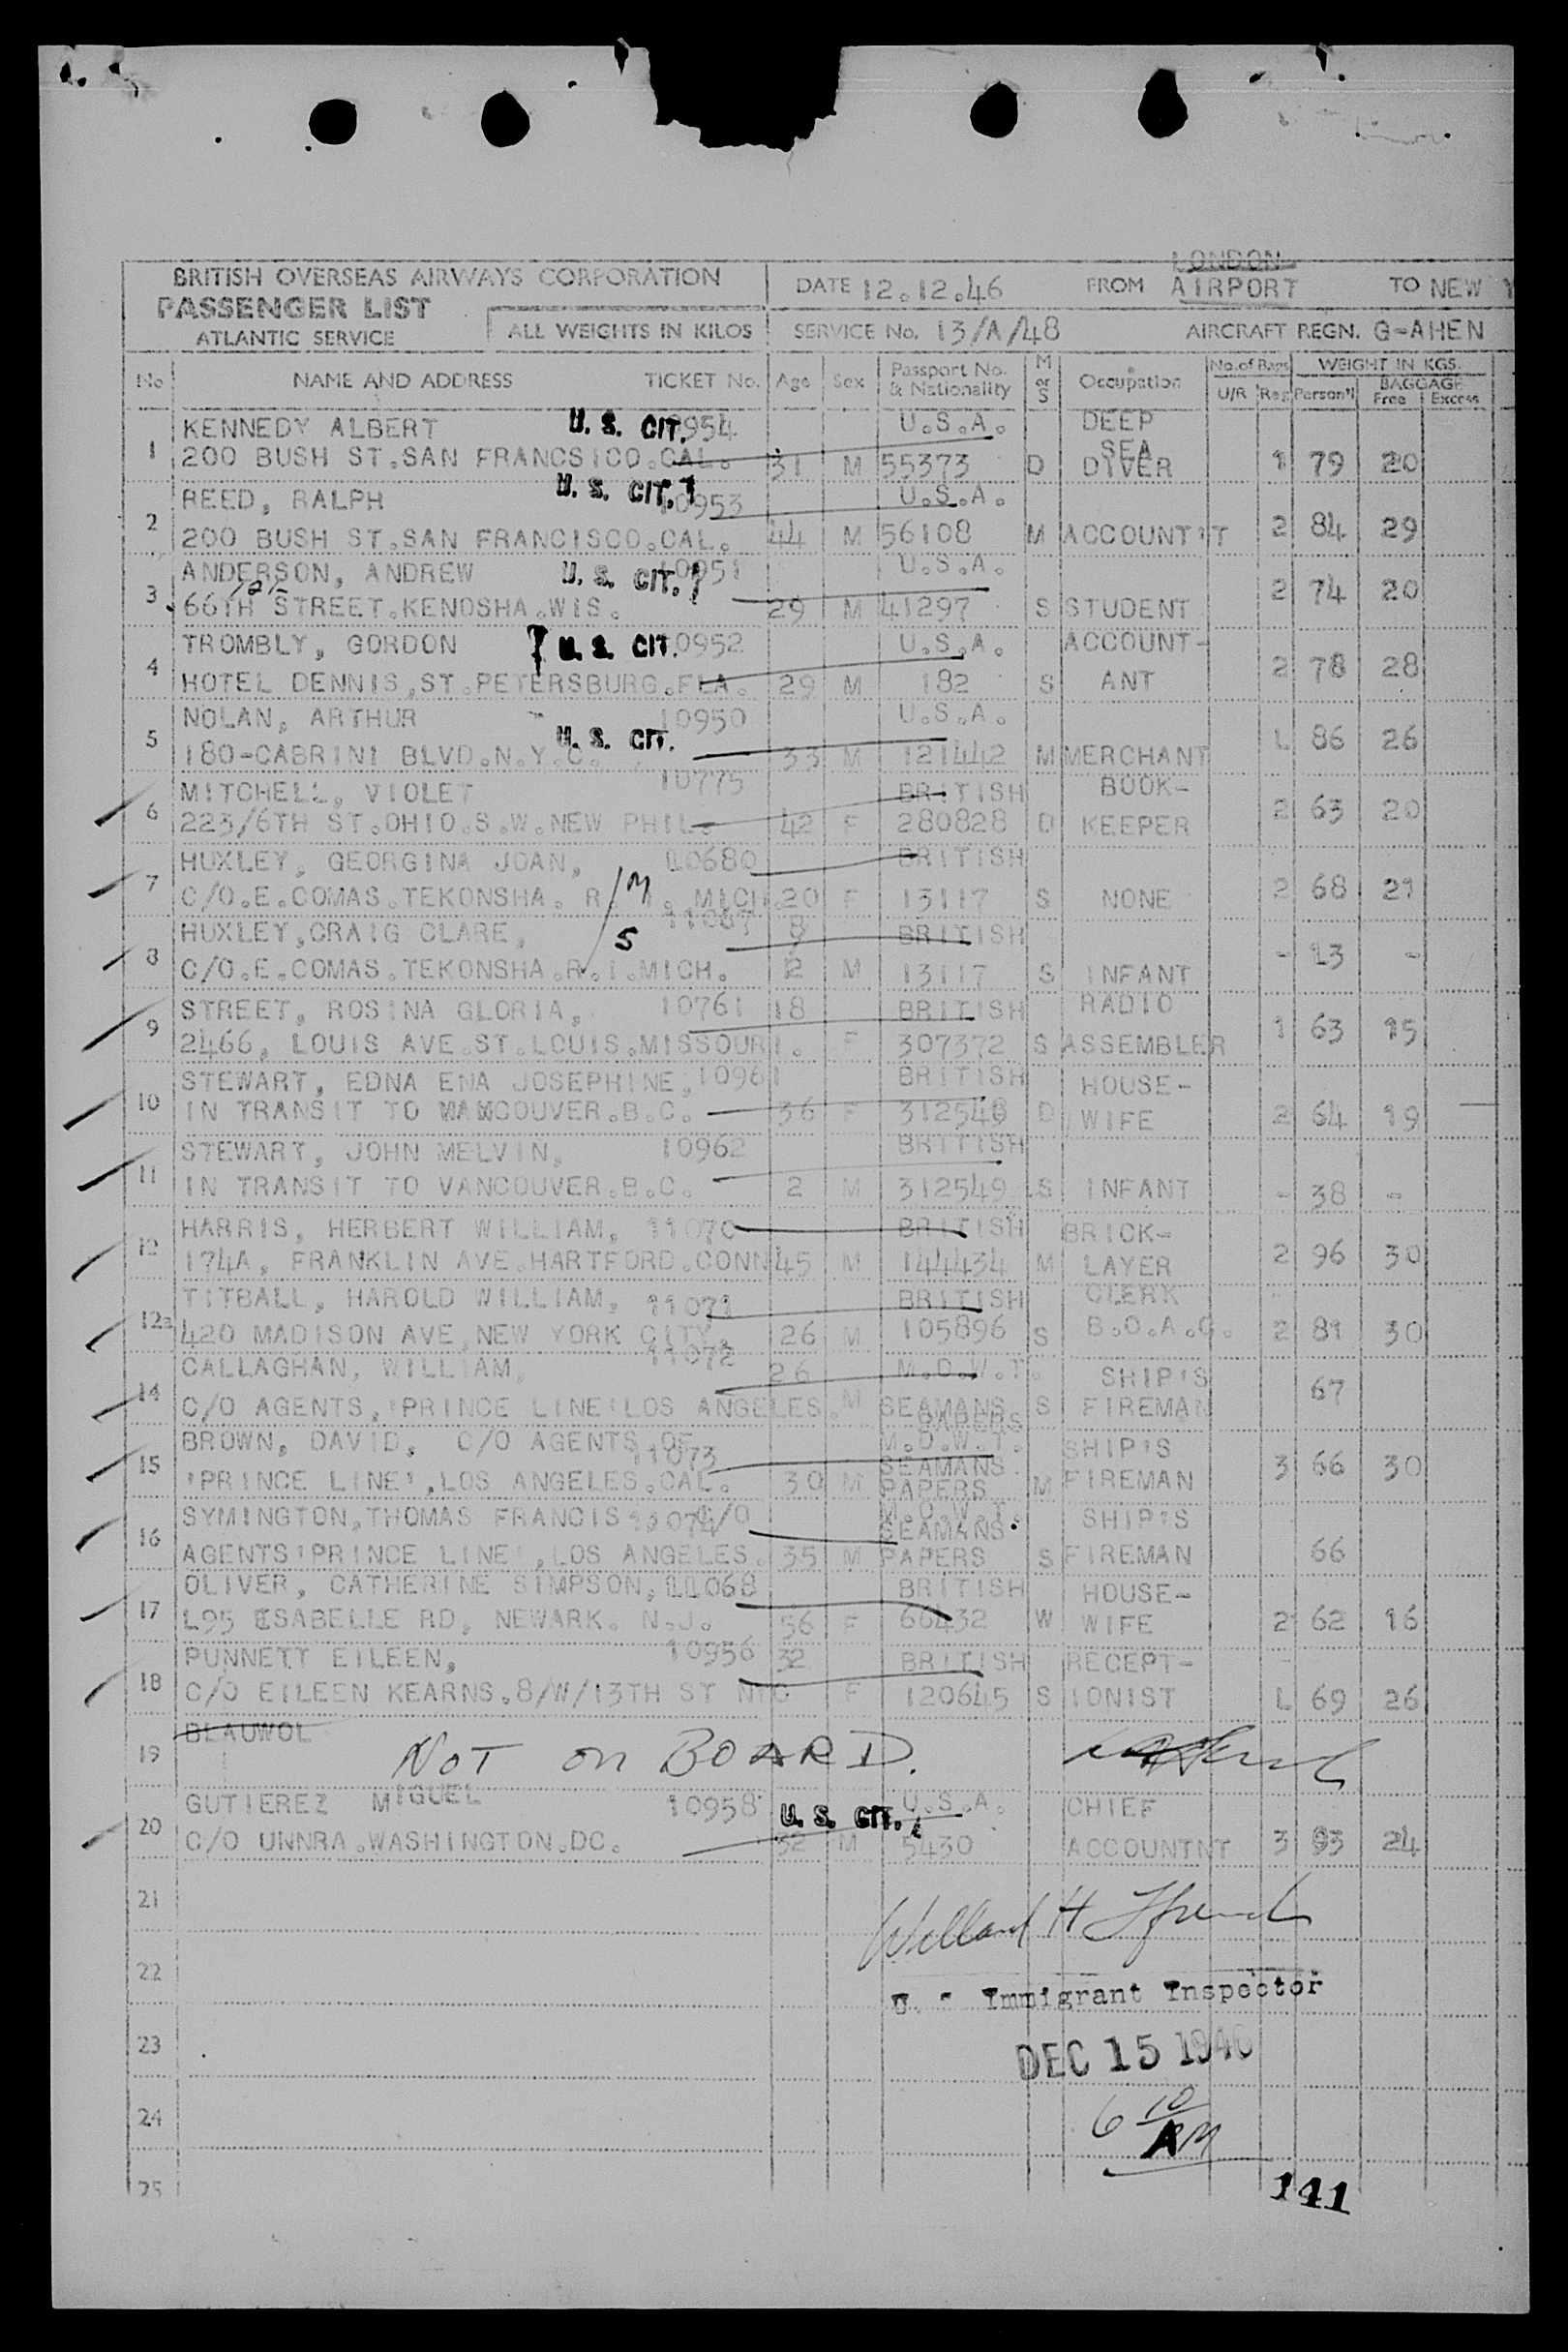 BRITISH OVERSEAS AIRWAYS CORPORATION
PASSENGER LIST
ATLANTIC SERVICE
ALL WEIGHTS IN KILOS
DATE 12.12.46 FROM LONDON AIRPORT TO NEW Y
SERVICE No. 13/A/48 AIRCRAFT REGN. G-AHEN
No NAME AND ADDRESS TICKET No. Age Sex Passport No. & Nationality M or S Occupation No. of Bags U/R Reg WEIGHT IN KGS. Person'l BAGGAGE Free Excess
KENNEDY ALBERT U. S. CIT. 954 U.S.A. DEEP SEA
1 200 BUSH ST.SAN FRANCSICO.CAL. 31 M 55373 D DIVER 1 79 20
REED, RALPH U. S. CIT. 10953 U.S.A.
2 200 BUSH ST.SAN FRANCISCO.CAL. 44 M 56108 M ACCOUNT'T 2 84 29
ANDERSON, ANDREW U. S. CIT. 10951 U.S.A.
3 66TH STREET.KENOSHA.WIS. 29 M 41297 S STUDENT 2 74 20
TROMBLY, GORDON U. S. CIT. 10952 U.S.A. ACCOUNT-
4 HOTEL DENNIS,ST.PETERSBURG.FLA. 29 M 182 S ANT 2 78 28
NOLAN, ARTHUR 10950 U.S.A.
5 180-CABRINI BLVD.N.Y.C. U. S. CIT. 33 M 121442 M MERCHANT L 86 26
MITCHELL, VIOLET 10775 BRITISH BOOK-
6 223/6TH ST.OHIO.S.W.NEW PHIL. 42 F 280828 D KEEPER 2 63 20
HUXLEY, GEORGINA JOAN, 10680 BRITISH
7 C/O.E.COMAS.TEKONSHA. R. M. MICH. 20 F 13117 S NONE 2 68 21
HUXLEY,CRAIG CLARE, 11067 BRITISH
8 C/O.E.COMAS.TEKONSHA.R.I.MICH. 5 2 M 13117 S INFANT - 13 -
STREET, ROSINA GLORIA, 10761 18 BRITISH RADIO
9 2466, LOUIS AVE.ST.LOUIS.MISSOURI. F 307372 S ASSEMBLER 1 63 15
STEWART, EDNA ENA JOSEPHINE, 10961 BRITISH HOUSE-
10 IN TRANSIT TO VANCOUVER.B.C. 36 F 312548 D WIFE 2 64 19
STEWART, JOHN MELVIN, 10962 BRITISH
11 IN TRANSIT TO VANCOUVER.B.C. 2 M 312549 S INFANT - 38 -
HARRIS, HERBERT WILLIAM, 11070 BRITISH BRICK-
12 174A, FRANKLIN AVE.HARTFORD.CONN 45 M 144434 M LAYER 2 96 30
TITBALL, HAROLD WILLIAM, 11071 BRITISH CLERK
12a 420 MADISON AVE,NEW YORK CITY, 26 M 105896 S B.O.A.C. 2 81 30
CALLAGHAN, WILLIAM, 11072 26 M.O.W.T. SHIP'S
14 C/O AGENTS,'PRINCE LINE'LOS ANGELES. M SEAMANS PAPERS S FIREMAN 67
BROWN, DAVID, C/O AGENTS OF 11073 M.O.W.T. SHIP'S
15 'PRINCE LINE',LOS ANGELES.CAL. 30 M SEAMANS PAPERS M FIREMAN 3 66 30
SYMINGTON,THOMAS FRANCIS 11074 C/O M.O.W.T. SHIP'S
16 AGENTS'PRINCE LINE',LOS ANGELES. 35 M SEAMANS PAPERS S FIREMAN 66
OLIVER, CATHERINE SIMPSON, 11068 BRITISH HOUSE-
17 L95 ISABELLE RD, NEWARK. N.J. 56 F 66432 W WIFE 2 62 16
PUNNETT EILEEN, 10956 32 BRITISH RECEPT-
18 C/O EILEEN KEARNS.8/W/13TH ST NYC F 120645 S IONIST L 69 26
19 BLAUWOL
NOT on BOARD.
GUTIEREZ MIGUEL 10958 U. S. CIT. U.S.A. CHIEF
20 C/O UNNRA.WASHINGTON.DC. 32 M 5430 ACCOUNTNT 3 93 24
21
Willard H
22
Immigrant Inspector
23
DEC 15 1946
24
6 10 AM
141
25